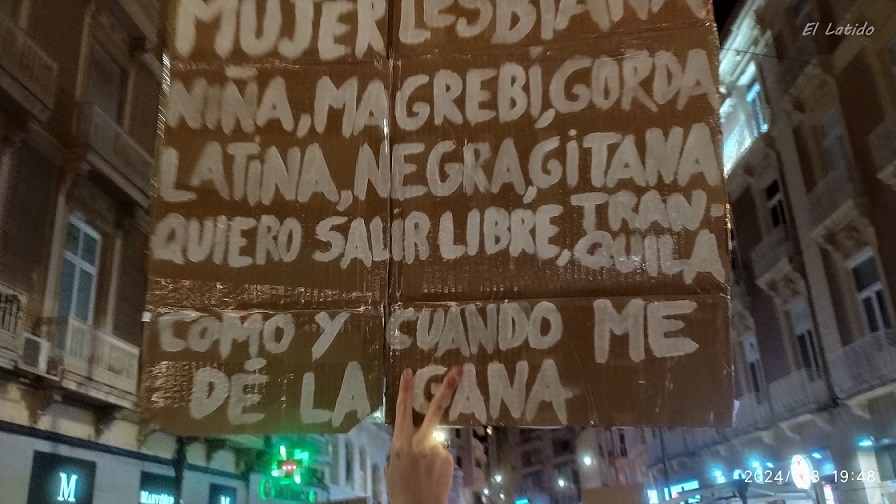 El Latido
MUJER LESBIANA
NIÑA, MAGREBÍ, GORDA
LATINA, NEGRA, GITANA
QUIERO SALIR LIBRE, TRAN-
QUILA
COMO Y CUANDO ME
DÉ LA GANA
M